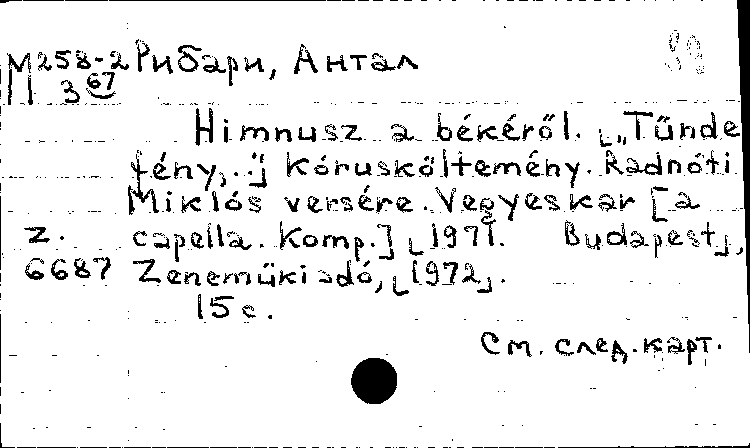 М 258-2 Рибари, Антал
3 67
Himnusz a békéről. [„Tünde
fény,..."] Kóruskőltemény. Radnóti
Miklós versére. Vegyeskar [a
Z. capella. Komp.] [1971. Budapest],
6687 Zeneműkiadó, [1972].
15 c.
См. след. карт.